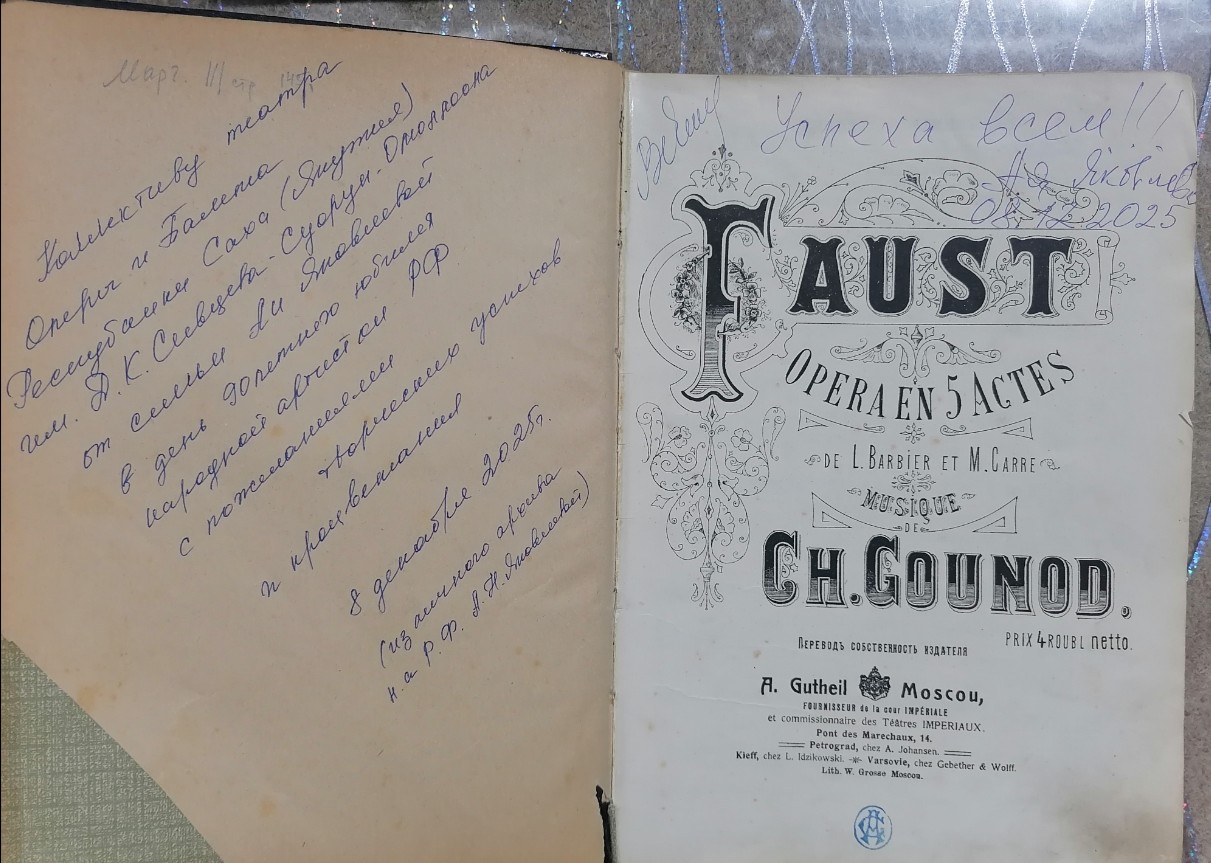 Марг. III/стр
Коллективу театра
Оперы и Балета
Республики Саха (Якутия)
им. Д.К. Сивцева-Суорун-Омоллоона
от семьи Ан Яковлевой
в день 90летнего юбилея
народной артистки РФ
с пожеланиями
творческих успехов
и процветания
8 декабря 2025г.
(из личного архива
н.а Р.Ф. А.Н.Яковлевой)
Успеха всем!!!
На Яковлева
08.12.2025
FAUST
OPERA EN 5 ACTES
DE L. BARBIER ET M. CARRE
MUSIQUE
DE
CH. GOUNOD,
PRIX 4 ROUBL netto.
ПЕРЕВОДЪ СОБСТВЕННОСТЬ ИЗДАТЕЛЯ
A. Gutheil Moscou,
FOURNISSEUR de la cour IMPÉRIALE
et commissionnaire des Téâtres IMPERIAUX.
Pont des Marechaux, 14.
Petrograd, chez A. Johansen.
Kieff, chez L. Idzikowski. Varsovie, chez Gebether & Wolff.
Lith. W. Grosse Moscou.